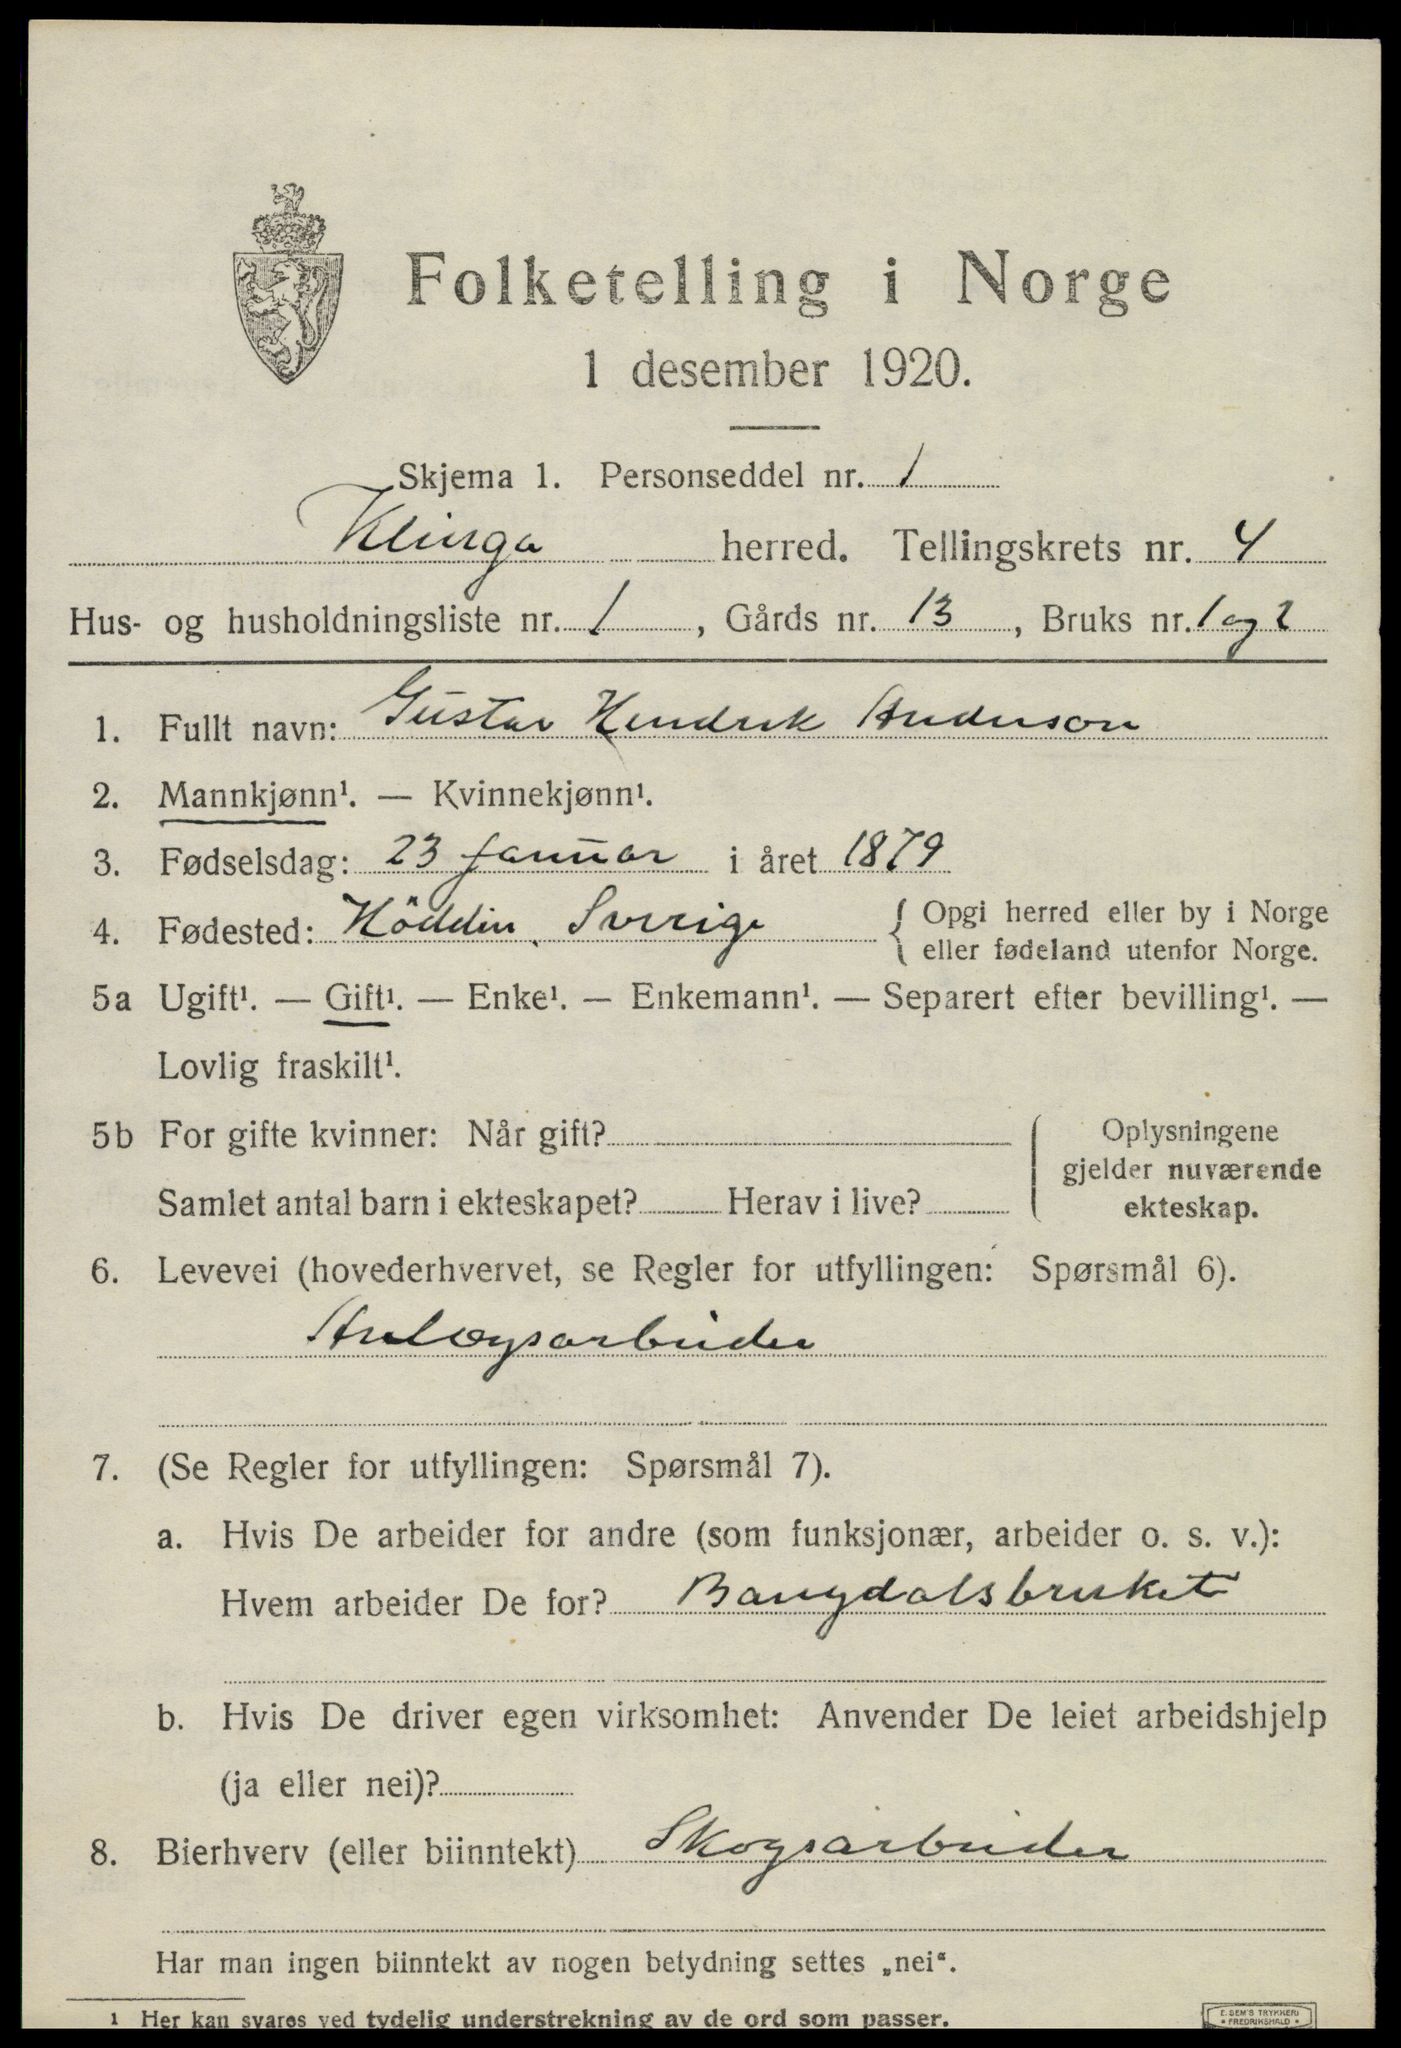 Folketelling i Norge
1 desember 1920.
Skjema 1. Personseddel nr. 1
Klinga herred. Tellingskrets nr. 4
Hus- og husholdningsliste nr. 1, Gårds nr. 13, Bruks nr. 1 og 2
1. Fullt navn: Gustav Hendrik Anderson
2. Mannkjønn¹. — Kvinnekjønn¹.
3. Fødselsdag: 23 januar i året 1879
4. Fødested: Höddin, Sverige { Opgi herred eller by i Norge
eller fødeland utenfor Norge.
5a Ugift¹. — Gift¹. — Enke¹. — Enkemann¹. — Separert efter bevilling¹. —
Lovlig fraskilt¹.
5b For gifte kvinner: Når gift?
Samlet antal barn i ekteskapet? Herav i live?
Oplysningene
gjelder nuværende
ekteskap.
6. Levevei (hovederhvervet, se Regler for utfyllingen: Spørsmål 6).
Anlægsarbeider
7. (Se Regler for utfyllingen: Spørsmål 7).
a. Hvis De arbeider for andre (som funksjonær, arbeider o. s. v.):
Hvem arbeider De for? Bangdalsbruket
b. Hvis De driver egen virksomhet: Anvender De leiet arbeidshjelp
(ja eller nei)?
8. Bierhverv (eller biinntekt) Skogsarbeider
Har man ingen biinntekt av nogen betydning settes „nei“.
¹ Her kan svares ved tydelig understrekning av de ord som passer.
E. SEM'S TRYKKERI
* FREDRIKSHALD *